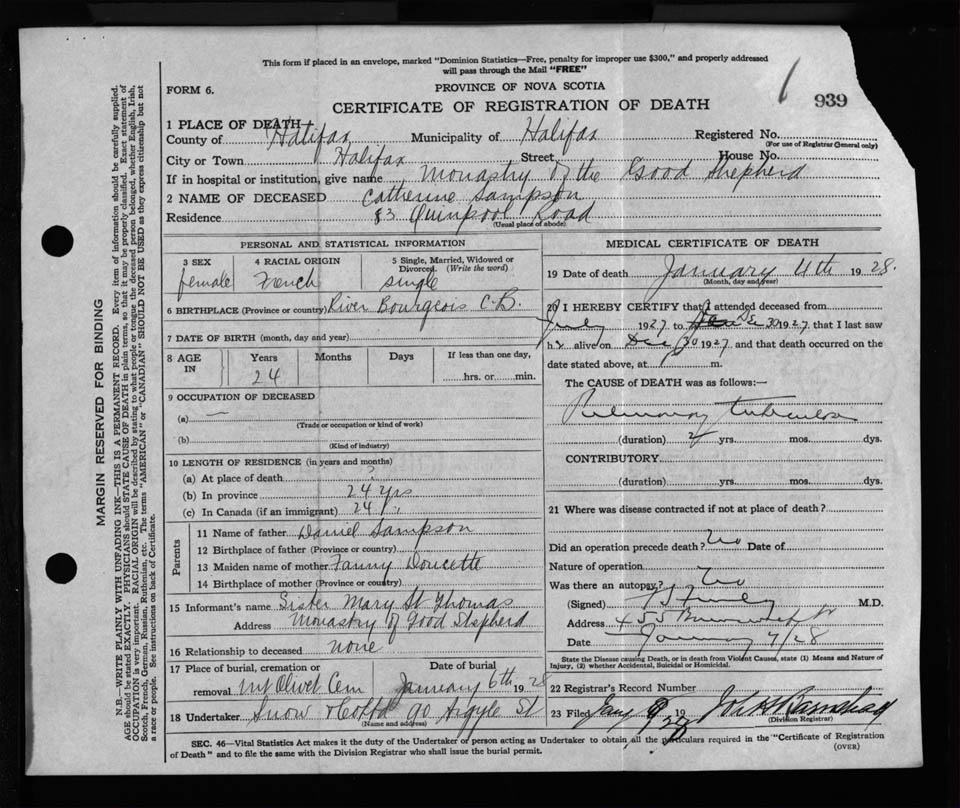 This form if placed in an envelope, marked "Dominion Statistics—Free, penalty for improper use $300," and properly addressed
will pass through the Mail "FREE"
FORM 6.
PROVINCE OF NOVA SCOTIA
939
CERTIFICATE OF REGISTRATION OF DEATH
1 PLACE OF DEATH—
County of Halifax Municipality of Halifax Registered No.
(For use of Registrar General only)
City or Town Halifax Street, House No.
If in hospital or institution, give name Monastry of the Good Shepherd
2 NAME OF DECEASED Catherine Sampson
Residence 83 Quinpool Road
(Usual place of abode)
PERSONAL AND STATISTICAL INFORMATION
3 SEX 4 RACIAL ORIGIN 5 Single, Married, Widowed or
Divorced. (Write the word)
female French single
6 BIRTHPLACE (Province or country) River Bourgeois C.B.
7 DATE OF BIRTH (month, day and year)
8 AGE IN Years Months Days If less than one day,
24 hrs. or min.
9 OCCUPATION OF DECEASED
(a) —
(Trade or occupation or kind of work)
(b)
(Kind of industry)
10 LENGTH OF RESIDENCE (in years and months)
(a) At place of death ?
(b) In province 24 yrs
(c) In Canada (if an immigrant) 24 "
Parents
11 Name of father Daniel Sampson
12 Birthplace of father (Province or country)
13 Maiden name of mother Fanny Doucette
14 Birthplace of mother (Province or country)
15 Informant's name Sister Mary St Thomas
Address Monastry of Good Shepherd
16 Relationship to deceased none
17 Place of burial, cremation or Date of burial
removal Mt Olivet Cem January 6th 1928
18 Undertaker Snow & Co Ltd 90 Argyle St
(Name and address)
MEDICAL CERTIFICATE OF DEATH
19 Date of death January 4th 1928.
(Month, day and year)
20 I HEREBY CERTIFY that I attended deceased from
July 1927 to Dec 30 1927 that I last saw
h alive on Dec 30 1927 and that death occurred on the
date stated above, at m.
The CAUSE of DEATH was as follows:—
Pulmonary tuberculosis
(duration) 2 yrs. mos. dys.
CONTRIBUTORY
(duration) yrs. mos. dys.
21 Where was disease contracted if not at place of death?
Did an operation precede death? No Date of
Nature of operation
Was there an autopsy? No
(Signed) M.D.
Address 455
Date January 4/28
State the Disease causing Death, or in death from Violent Causes, state (1) Means and Nature of
Injury, (2) whether Accidental, Suicidal or Homicidal.
22 Registrar's Record Number
23 Filed Jany 19
(Division Registrar)
SEC. 46—Vital Statistics Act makes it the duty of the Undertaker or person acting as Undertaker to obtain all the particulars required in the "Certificate of Registration
of Death" and to file the same with the Division Registrar who shall issue the burial permit.
(OVER)
MARGIN RESERVED FOR BINDING
N.B.—WRITE PLAINLY WITH UNFADING INK—THIS IS A PERMANENT RECORD. Every item of information should be carefully supplied.
AGE should be stated EXACTLY. PHYSICIANS should STATE CAUSE OF DEATH in plain terms, so that it may be properly classified. Exact statement of
OCCUPATION is very important. RACIAL ORIGIN will be described by stating to what people or tongue the deceased person belonged, whether English, Irish,
Scotch, French, German, Russian, Ruthenian, etc. The terms "AMERICAN" or "CANADIAN" SHOULD NOT BE USED as they express citizenship but not
a race or people. See instructions on back of Certificate.